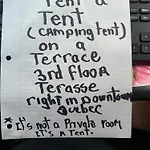 Rent a
Tent
(camping tent)
on a
Terrace
3rd floor
Terasse
right in Downtown
Quebec
* It's not a Private room
It's a Tent.